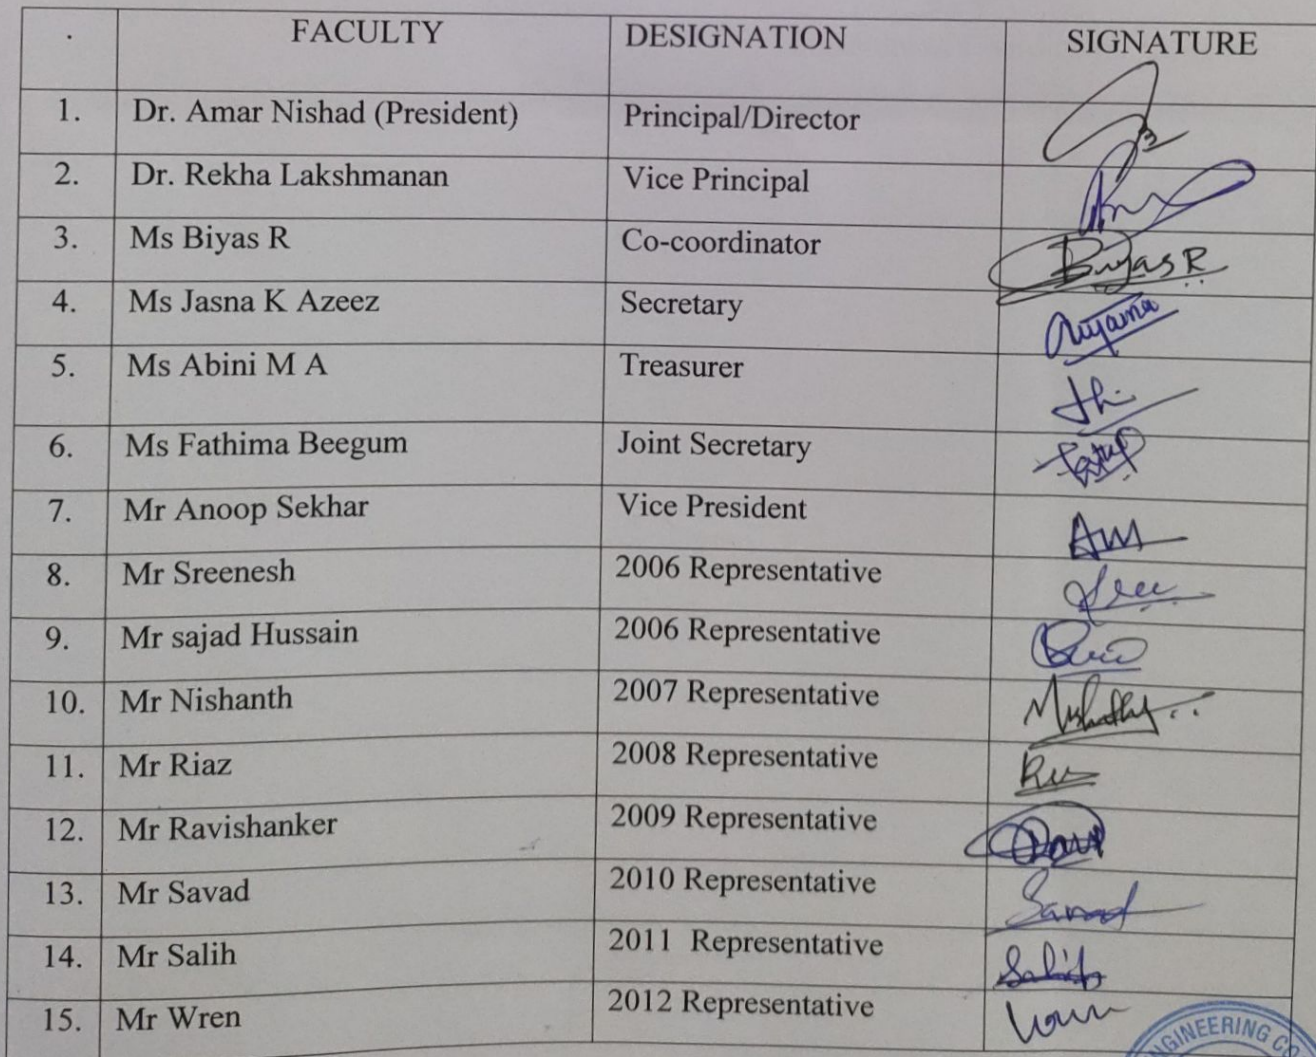 . FACULTY DESIGNATION SIGNATURE
1. Dr. Amar Nishad (President) Principal/Director
2. Dr. Rekha Lakshmanan Vice Principal
3. Ms Biyas R Co-coordinator Biyas R
4. Ms Jasna K Azeez Secretary
5. Ms Abini M A Treasurer
6. Ms Fathima Beegum Joint Secretary
7. Mr Anoop Sekhar Vice President
8. Mr Sreenesh 2006 Representative
9. Mr sajad Hussain 2006 Representative
10. Mr Nishanth 2007 Representative
11. Mr Riaz 2008 Representative
12. Mr Ravishanker 2009 Representative
13. Mr Savad 2010 Representative
14. Mr Salih 2011 Representative
15. Mr Wren 2012 Representative
GINEERING CO